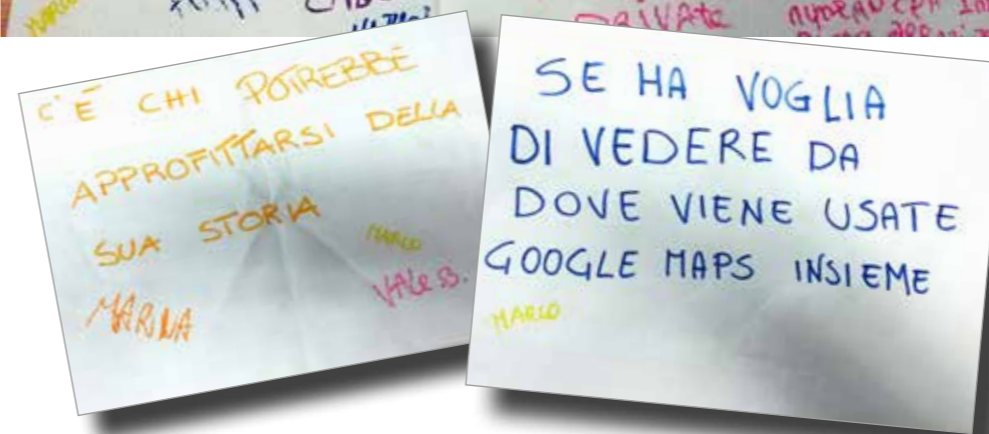 MARCO
PRIVATE
C'È CHI POTREBBE
APPROFITTARSI DELLA
SUA STORIA
MARCO
VALE B.
MARINA
SE HA VOGLIA
DI VEDERE DA
DOVE VIENE USATE
GOOGLE MAPS INSIEME
MARCO